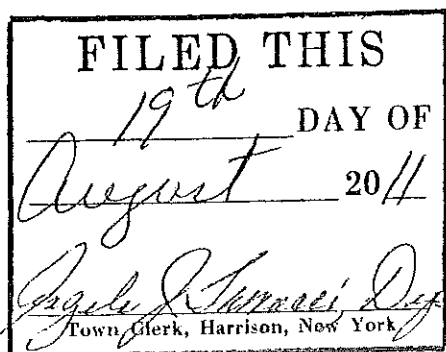 FILED THIS
19th DAY OF
August 2011
Angela J. Dep
Town Clerk, Harrison, New York